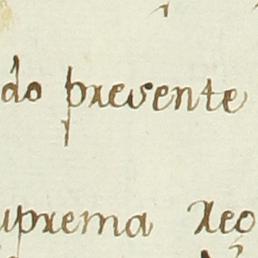 do presente
uprema Reo